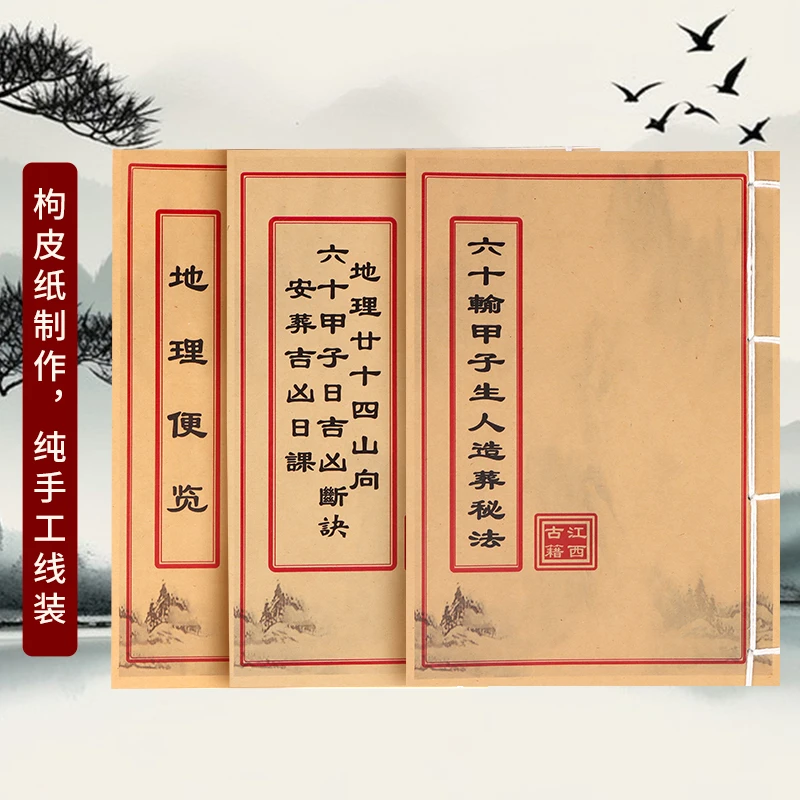 枸皮纸制作，纯手工线装
地理便览
地理廿十四山向
六十甲子日吉凶斷訣
安葬吉凶日課
六十輸甲子生人造葬秘法
江西
古籍